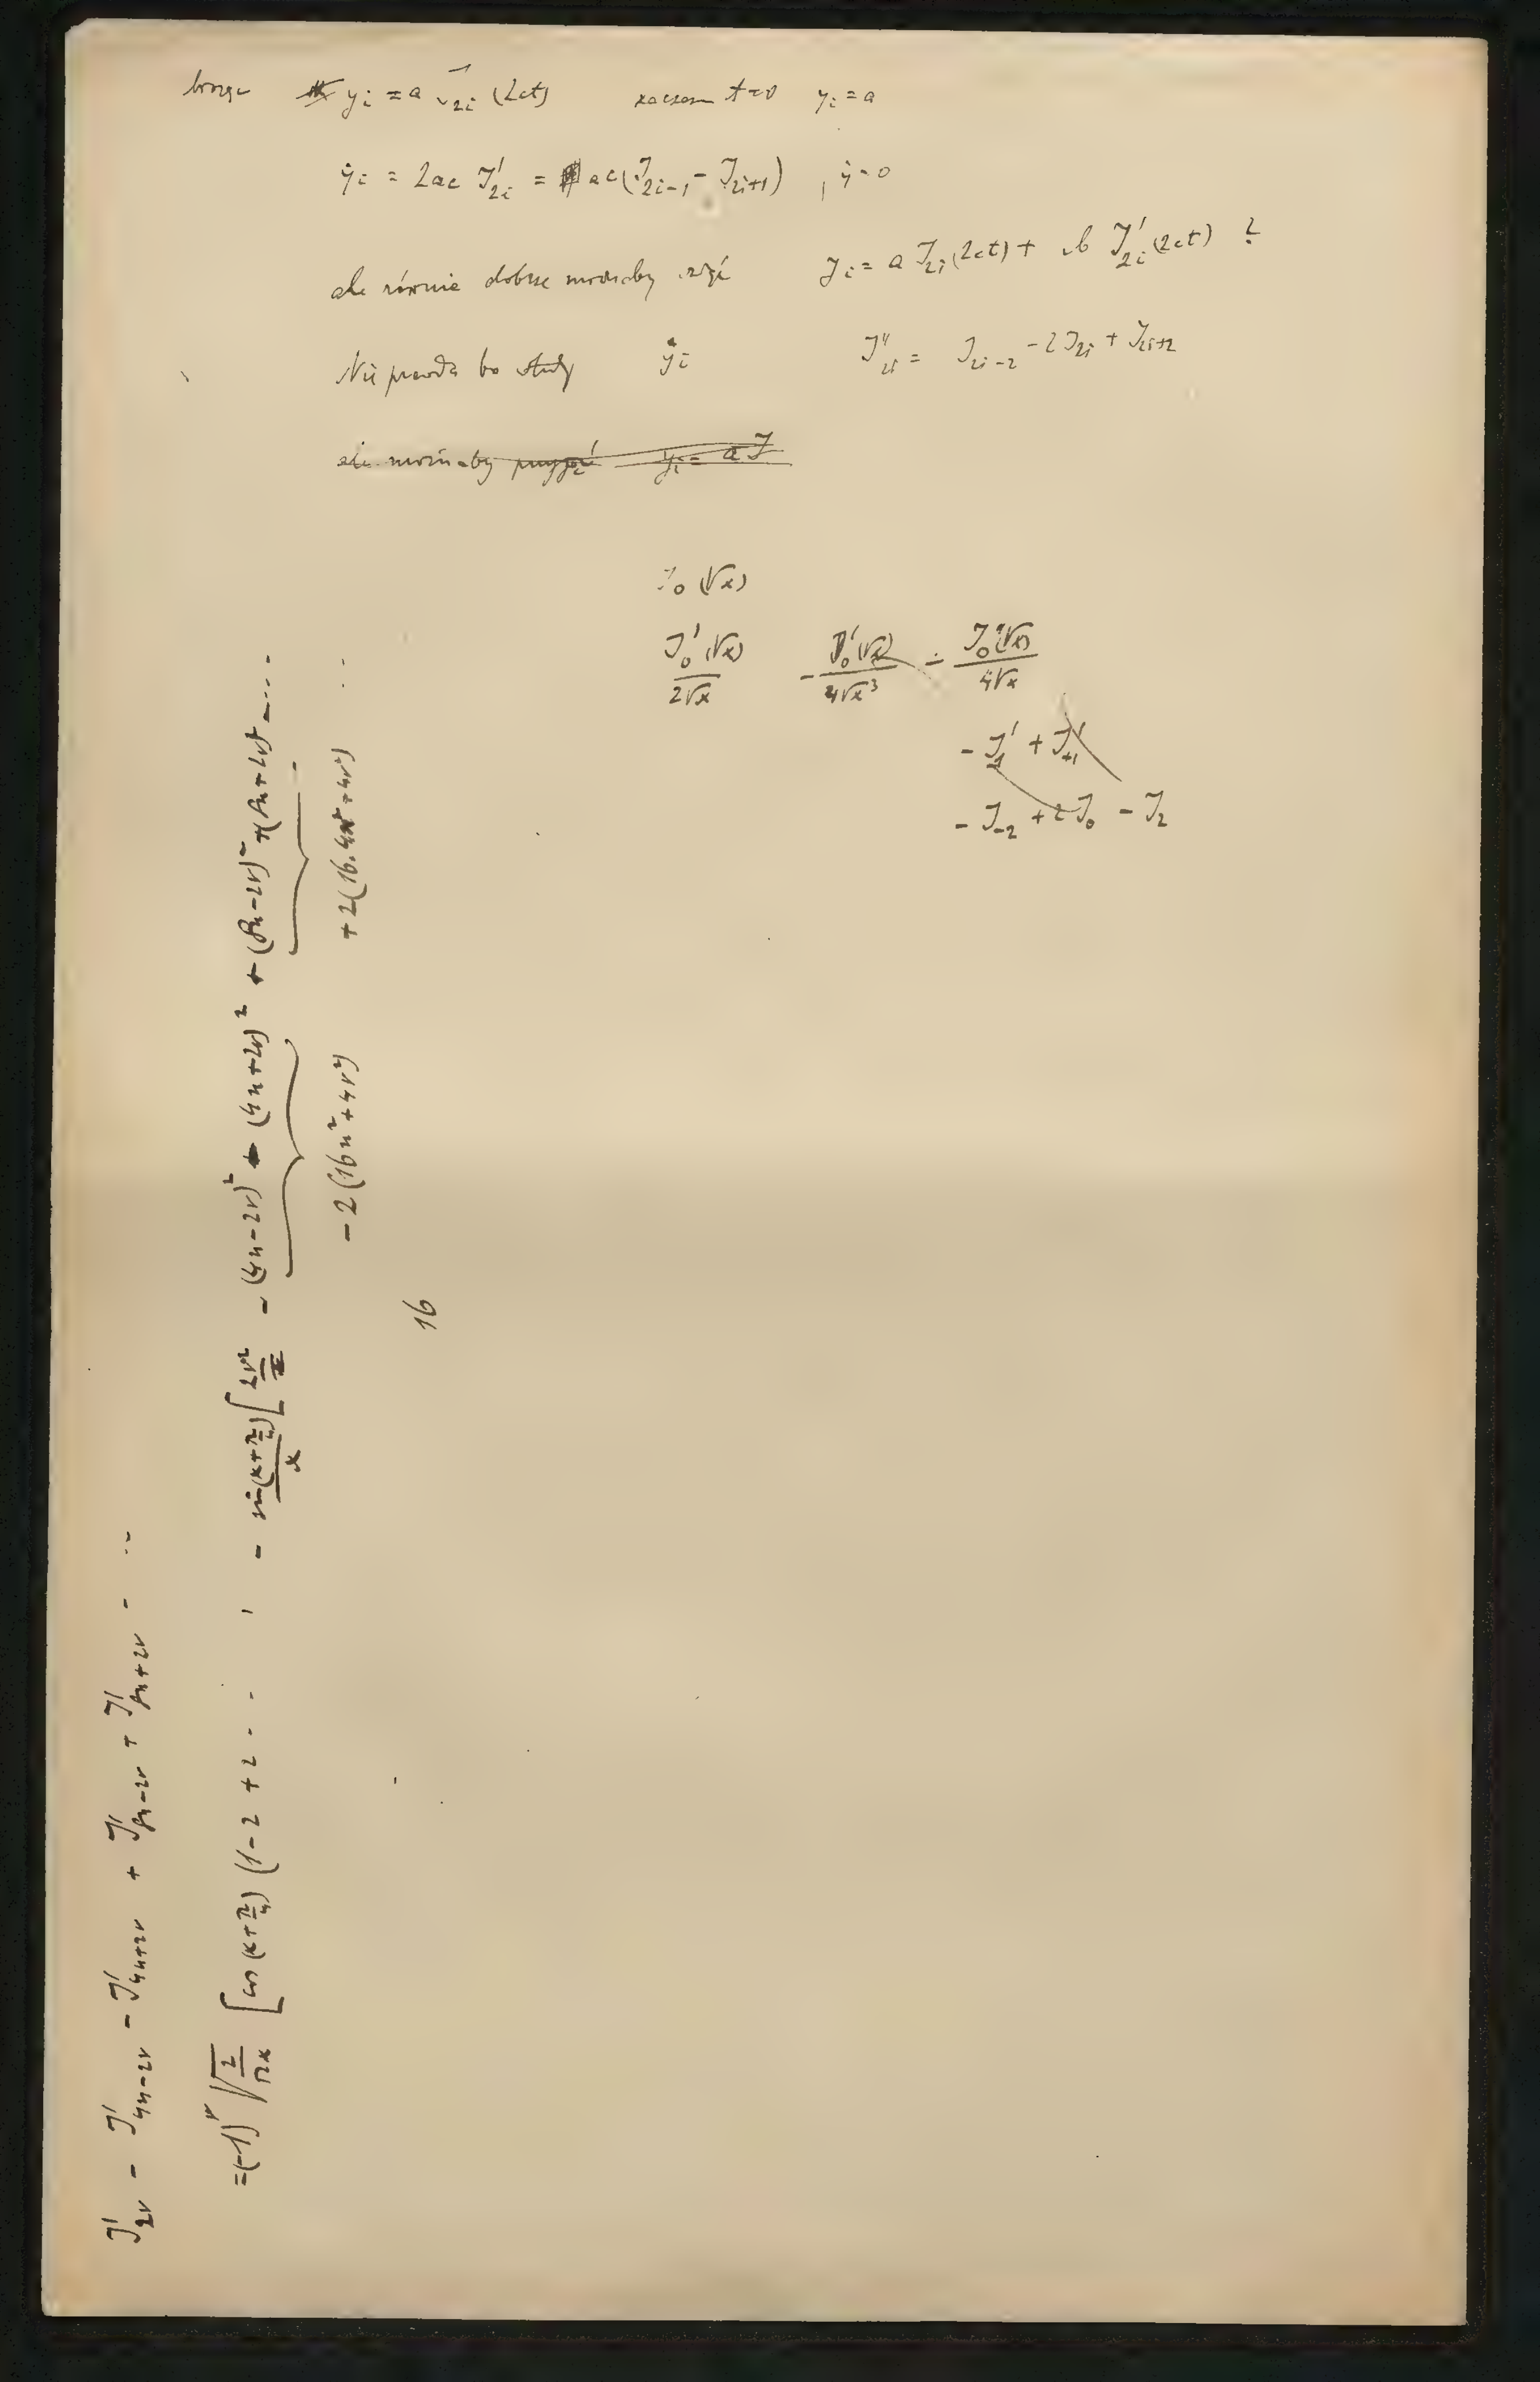 biorąc y_i = a J_{2i} (2ct) zaczem t=0 y_i = a
ẏ_i = 2ac J'_{2i} = ac(J_{2i-1} - J_{2i+1}) , ẏ=0
ale równie dobrze możnaby wziąć y_i = a J_{2i}(2ct) + b J'_{2i}(2ct) ?
Nie prawda bo wtedy ẏ_i J''_{2i} = J_{2i-2} - 2J_{2i} + J_{2i+2}
ale możnaby przyjąć y_i = a J
J_0 (√x)
J'_0(√x) / 2√x - J'_0(√x) / 4√x³ J''_0(√x) / 4√x
- J'_{-1} + J'_{+1}
- J_{-2} + 2J_0 - J_2
J'_{2ν} - J'_{4n-2ν} - J'_{4n+2ν} + J'_{8n-2ν} + J'_{8n+2ν} - ..
= (-1)^ν √(2/πx) [cos(x+π/4) (1 - 2 + 2 - - - sin(x+π/4)/x [ - (4n-2ν)² - (4n+2ν)² + (8n-2ν)² + (8n+2ν)² ----
- 2(16n²+4ν²) + 2(16.4n²+4ν²) ..
16